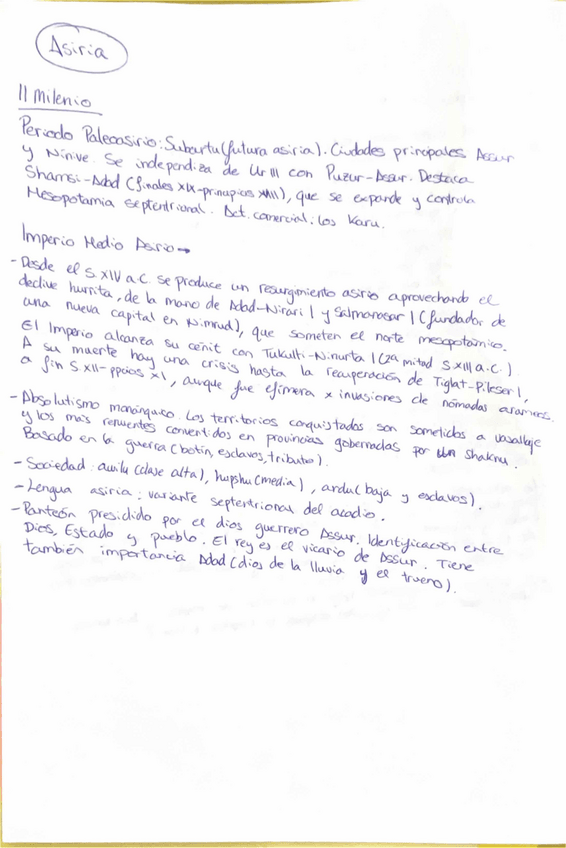 Asiria
II Milenio
Periodo Paleoasirio: Subartu (futura asiria). Ciudades principales Assur
y Nínive. Se independiza de Ur III con Puzur-Assur. Destaca
Shamsi-Adad (finales XIX-principios XVIII), que se expande y controla
Mesopotamia septentrional. Act. comercial: los Karu.
Imperio Medio Asirio →
- Desde el S. XIV a.C. se produce un resurgimiento asirio aprovechando el
declive hurrita, de la mano de Adad-Nirari I y Salmanasar I (fundador de
una nueva capital en Nimrud), que someten el norte mesopotámico.
El Imperio alcanza su cénit con Tukulti-Ninurta I (2ª mitad S XIII a.C.)
A su muerte hay una crisis hasta la recuperación de Tiglat-Pileser I,
a fin S XII-ppcios XI, aunque fue efímera x invasiones de nómadas arameos.
- Absolutismo monárquico. Los territorios conquistados son sometidos a vasallaje
y los más renuentes convertidos en provincias gobernadas por un shaknu.
Basado en la guerra (botín, esclavos, tributo).
- Sociedad: awilu (clase alta), hupshu (media), ardu (baja y esclavos).
- Lengua asiria: variante septentrional del acadio.
- Panteón presidido por el dios guerrero Assur. Identificación entre
Dios, Estado y pueblo. El rey es el vicario de Assur. Tiene
también importancia Adad (dios de la lluvia y el trueno).